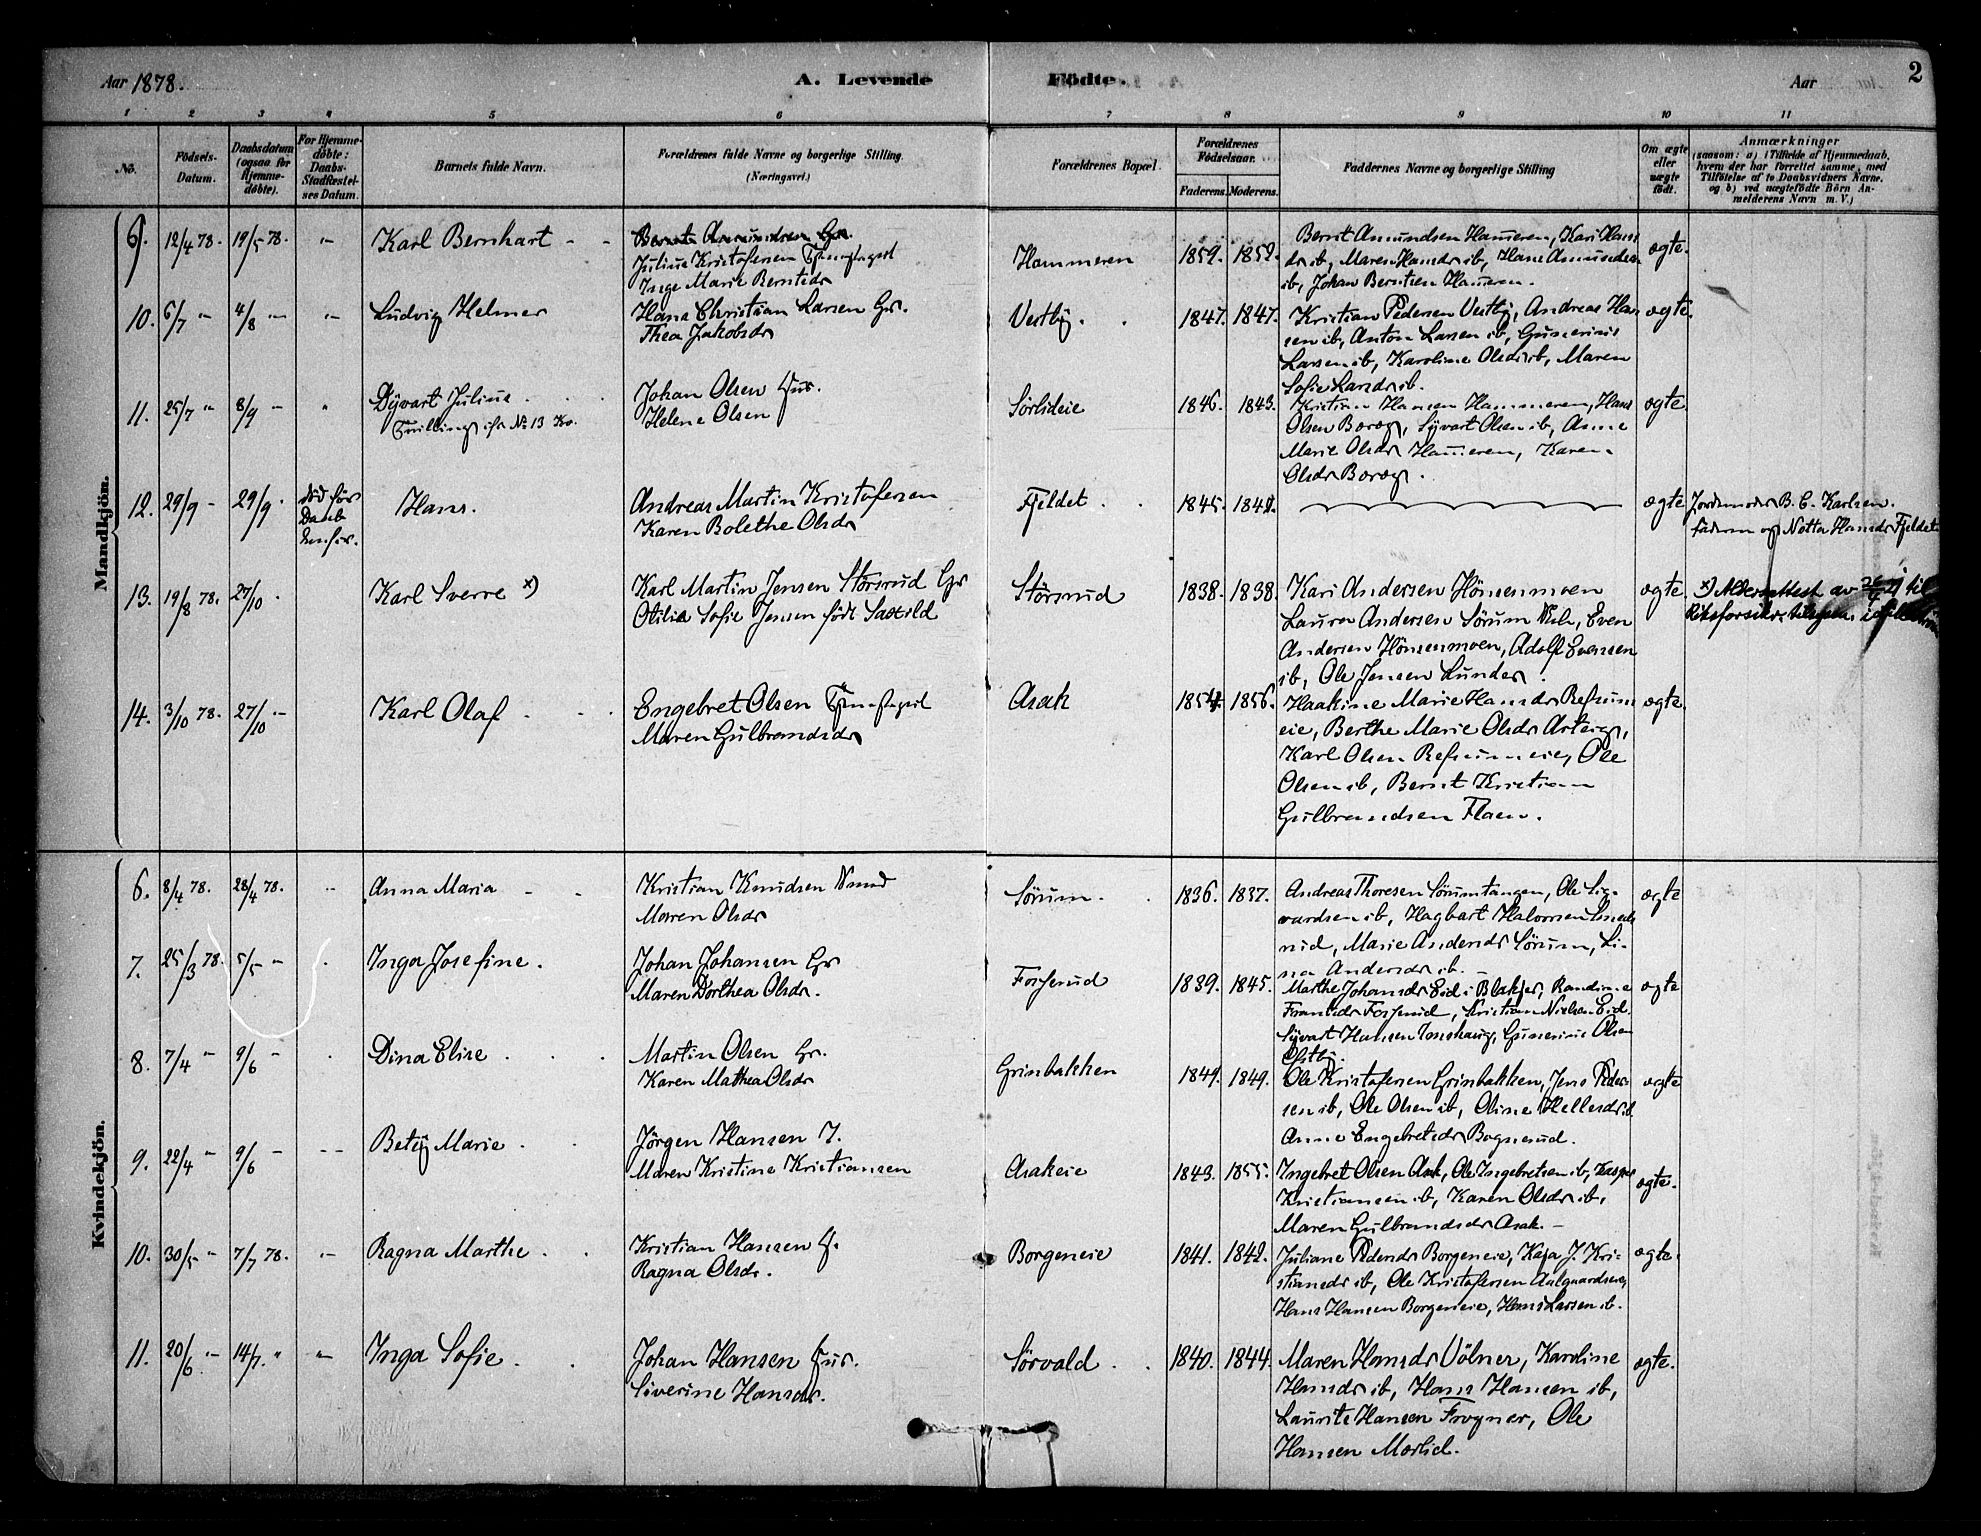 Aar 1878.
A. Levende Födte.
Aar
2
1 2 3 4 5 6 7 8 9 10 11
No.
Födsels-
Datum.
Daabsdatum
(ogsaa for
Hjemme-
döbte).
For Hjemme-
döbte:
Daabs-
Stadfæstel-
ses Datum.
Barnets fulde Navn.
Forældrenes fulde Navne og borgerlige Stilling.
(Næringsvei.)
Forældrenes Bopæl.
Forældrenes
Födselsaar.
Faderens.
Moderens.
Faddernes Navne og borgerlige Stilling
Om ægte
eller
uægte
födt.
Anmærkninger
(saasom: a) i Tilfælde af Hjemmedaab,
hvem der har forrettet samme, med
Tilföielse af to Daabsvidners Navne,
og b) ved uægtefödte Börn An-
melderens Navn m. V.)
Mandkjön.
9. 12/4 78. 19/5 78. " Karl Bernhart
Bernt Amundsen Gr.
Julius Kristofersen
Inge Marie Berntsdr
Hammeren 1859. 1852.
Bernt Amundsen Hammeren, Kari Hans
dr ib, Maren Hansdr ib, Hans Amundsen
ib, Johan Berntsen Hammeren.
ægte.
10. 6/7 " 4/8 " " Ludvig Helmer
Hans Christian Larsen Gr.
Thea Jakobsdr
Vestby. 1847. 1847.
Kristian Pedersen Vestby, Andreas Han
sen ib, Anton Larsen ib, Gunerius
Larsen ib, Karoline Olsdr ib, Maren
Sofie Larsdr ib.
ægte.
11. 25/7 " 8/9 " " Syvart Julius
Tvilling cfr No 13 Kv.
Johan Olsen Hus.
Helene Olsen
Sørlieie 1846. 1843.
Kristian Hansen Hammeren, Hans
Olsen Boræg, Syvart Olsen ib, Anne
Marie Olsdr Hammeren, Karen
Olsdr Boræg.
ægte
12. 29/9 - 29/9. död för
Daab
Hans.
Andreas Martin Kristofersen
Karen Bolethe Olsdr
Fjeldet. 1845. 1842.
ægte
Jordemoder B. C. Karlsen.
faderen og Netta Hansdr Fjeldet
13. 19/8 78. 27/10. Karl Sverre x)
Karl Martin Jensen Störsrud Gr
Otilia Sofie Jensen födt Saxvild
Störsrud 1838. 1838.
Kari Andersen Hönsenmoen
Laura Andersen Sörum Vesle, Even
Andersen Hönsenmoen, Adolf Evensen
ib, Ole Jensen Lunder.
ægte.
x) Aldersattest av til
Riksforsikr.
14. 3/10 78. 27/10. - Karl Olaf
Engebret Olsen
Maren Gulbrandsdr
Asak 1854. 1856.
Haakine Marie Hansdr Refsum
eie, Berthe Marie Olsdr Asteig,
Karl Olsen Refsumeie, Ole
Olsen ib, Bernt Kristian
Gulbrandsen Flaen.
ægte.
Kvindekjön.
6. 8/4 78. 28/4 78. " Anna Maria
Kristian Knudsen
Maren Olsdr
Sörum. 1836. 1837.
Andreas Thoresen Sörumtangen, Ole Sig-
vardsen ib, Hagbart Halvorsen
rud, Marie Andersdr Sörum, Li-
na Andersdr ib. -
ægte
7. 25/3 78. 5/5 - . Inga Josefine.
Johan Johansen Gr
Maren Dorthea Olsdr.
Fosserud 1839. 1845.
Marthe Johansdr Eid i Blakjer, Randine
Fransdr Fosserud, Kristian Nielsen Eid
Syvart Hansen Gunerius Olsen
Østby.
ægte
8. 7/4 " 9/6 - . Dina Elise
Martin Olsen Gr.
Karen Mathea Olsdr
Grinbakken 1849. 1849.
Ole Kristofersen Grinbakken, Jens Peder-
sen ib, Ole Olsen ib, Oline Hellersdr ib.
Anne Engebretsdr Bognerud.
ægte
9. 22/4 - 9/6 - - Betsy Marie
Jörgen Hansen I.
Maren Kristine Kristiansen
Asakeie 1843. 1855.
Ingebret Olsen Asak, Ole Ingebretsen ib, Kasper
Kristiansen ib, Karen Olsdr ib,
Maren Gulbrandsdr Asak. -
ægte.
10. 30/5 - 7/7 78. " Ragna Marthe
Kristian Hansen
Ragna Olsdr.
Borgeneie 1841. 1842.
Juliane Pedersdr Borgeneie, Kaja J. Kri-
stiansdr ib, Ole Kristofersen Aalgaardseie,
Hans Hansen Borgeneie, Hans Larsen ib.
ægte.
11. 20/6 " 14/7. " " Inga Sofie
Johan Hansen Hus.
Siverine Hansdr.
Sörvald 1840. 1844.
Maren Hansdr Völner, Karoline
Hansdr ib, Hans Hansen ib,
Laurits Hansen Frogner, Ole
Hansen Mörlid.
ægte.